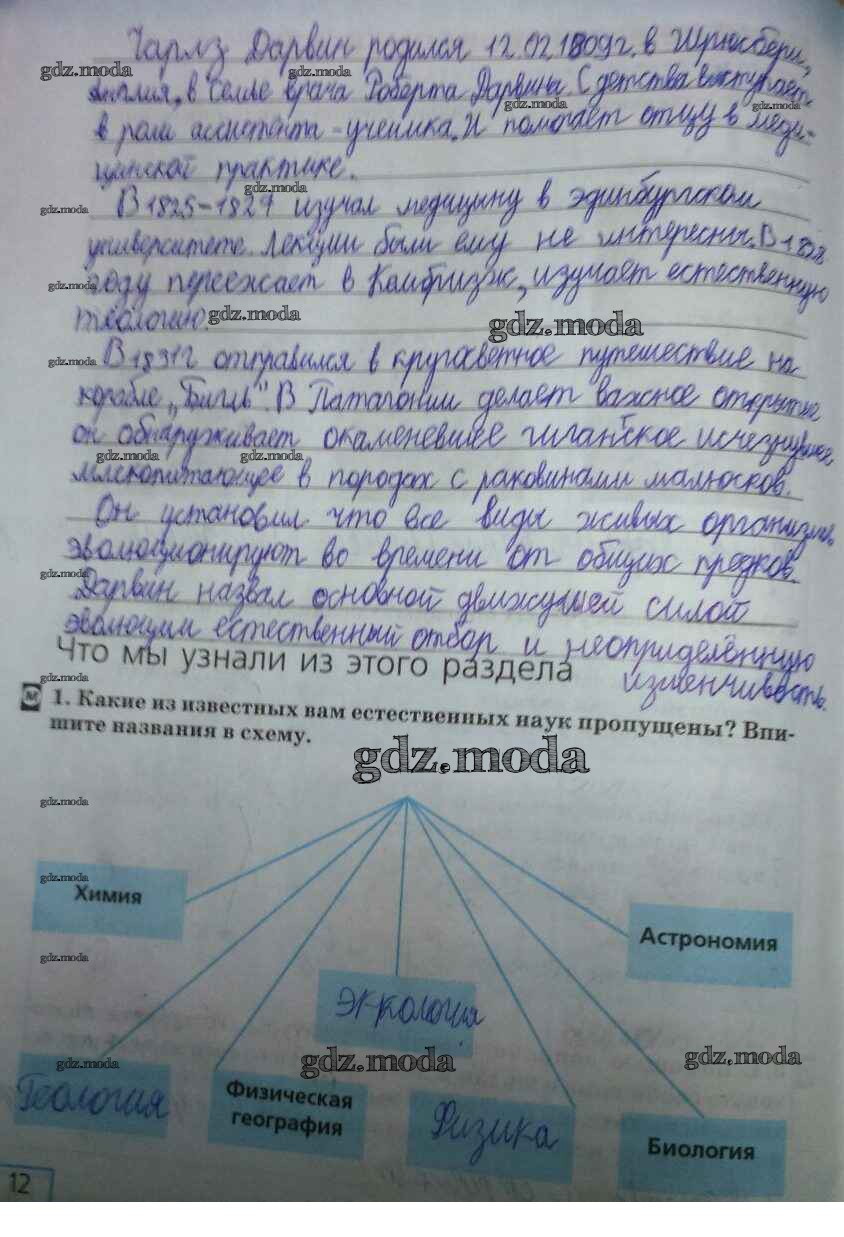 Чарлз Дарвин родился 12.02.1809г. в Шрюсбери,
Англия, в семье врача Роберта Дарвины. С детства выступает
в роли ассистента-ученика. И помогает отцу в меди-
цинской практике.
В 1825-1827 изучал медицину в эдинбургском
университете. Лекции были ему не интересны. В 1828
году переезжает в Кембридж, изучает естественную
теологию.
В 1831г отправился в кругосветное путешествие на
корабле „Бигль". В Патагонии делает важное открытие
он обнаруживает окаменевшее гигантское исчезнувшее
млекопитающее в породах с раковинами малюсков.
Он установил что все виды живых организмов
эволюционируют во времени от общих предков.
Дарвин назвал основной движущей силой
эволюции естественный отбор и неоприделённую
изменчивость.
Что мы узнали из этого раздела
м 1. Какие из известных вам естественных наук пропущены? Впи-
шите названия в схему.
gdz.moda
Химия
Астрономия
Эккология
Геология
Физическая
география
Физика
Биология
12